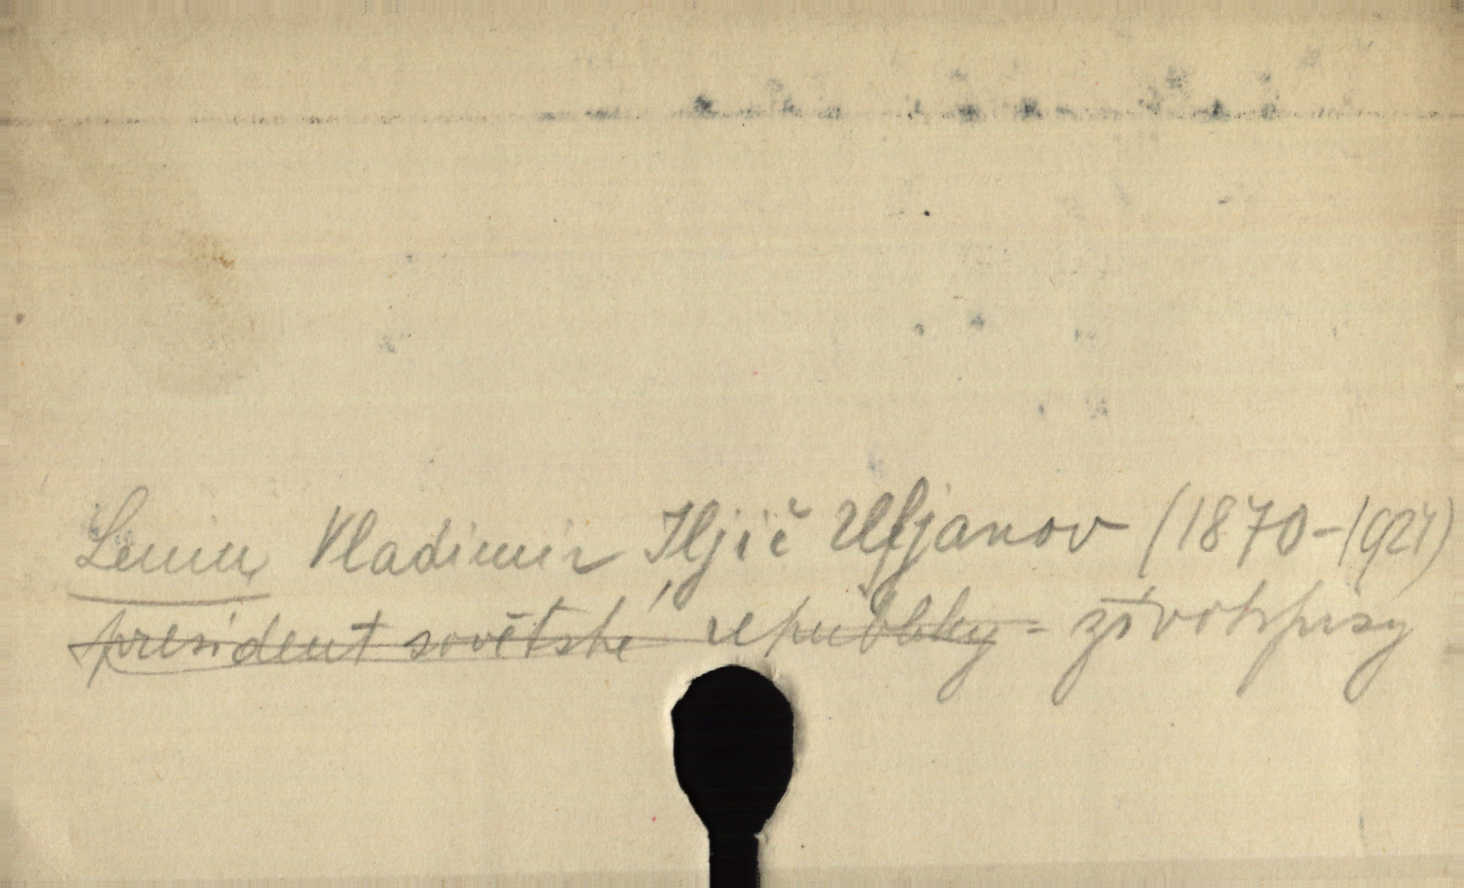 Lenin, Vladimir Iljič Uljanov (1870-1924)
president sovětské republiky - životopisy